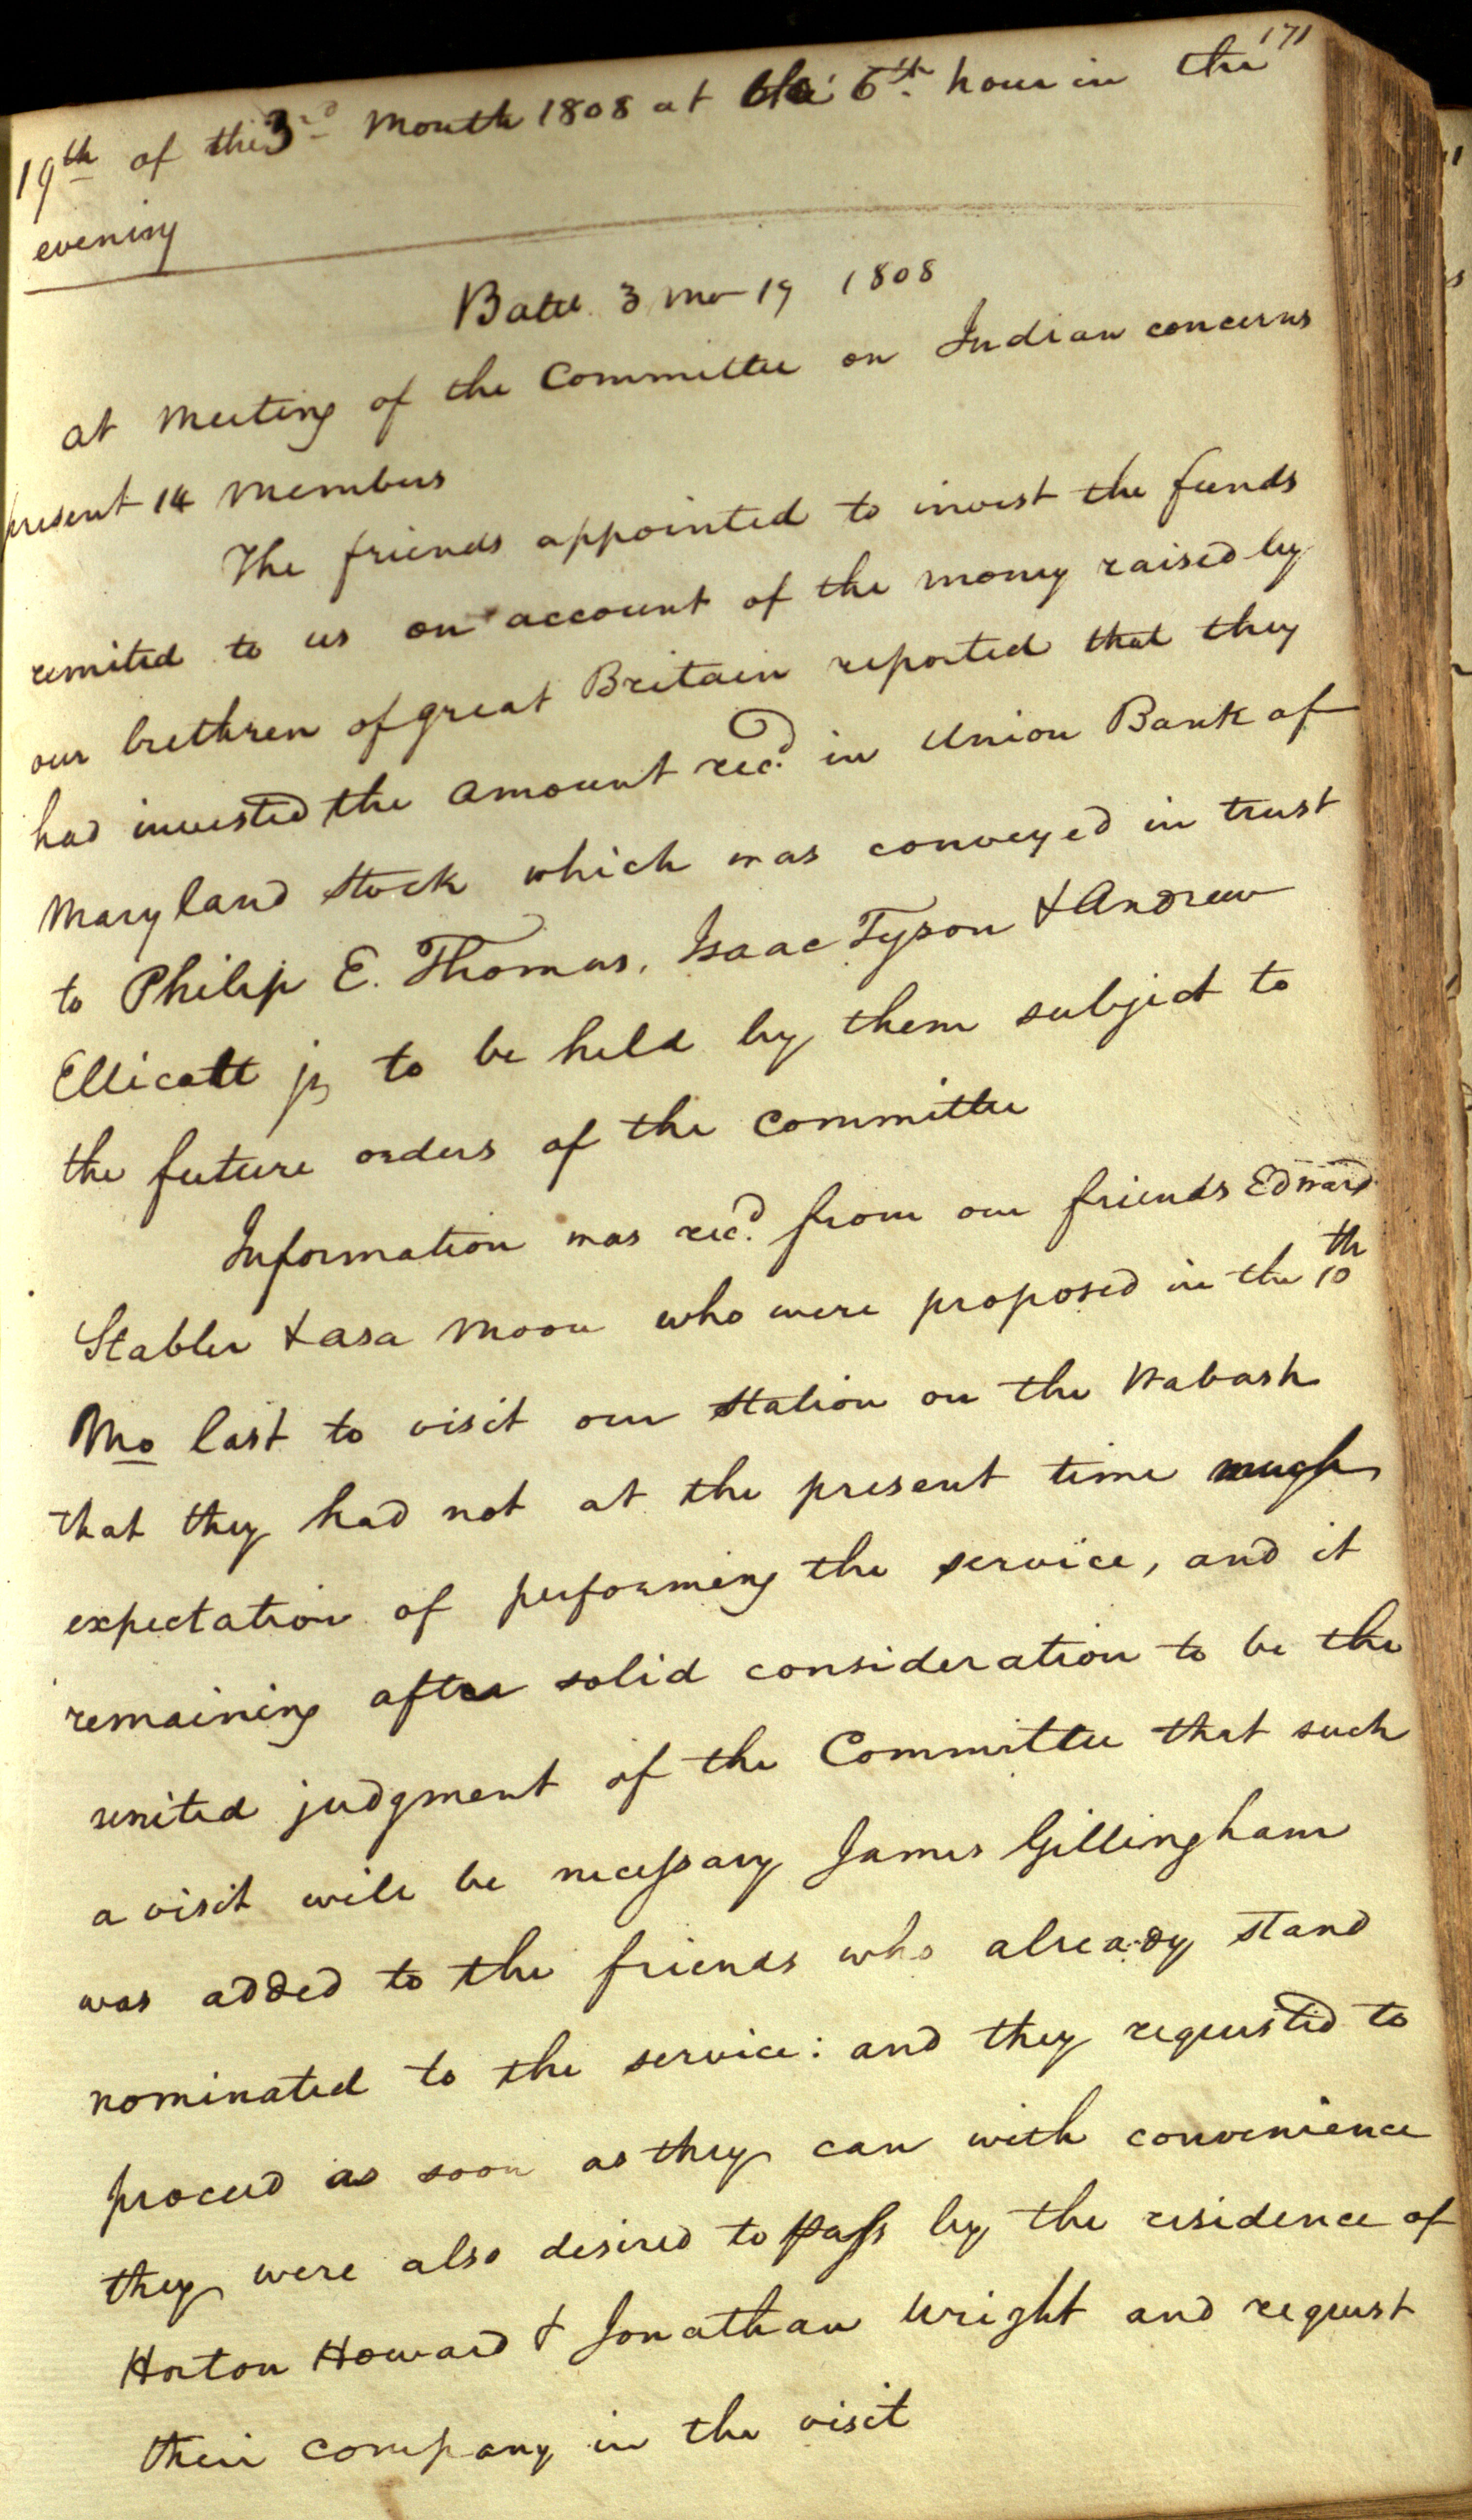 171
19th of the 3rd Month 1808 at the 6th hour in the
evening
Balte 3 mo 19 1808
at Meeting of the Committee on Indian concerns
present 14 Members
The friends appointed to invest the funds
remited to us on account of the money raised by
our brethren of great Britain reported that they
had invested the amount recd. in Union Bank of
Maryland Stock which was conveyed in trust
to Philip E. Thomas, Isaac Tyson & Andrew
Ellicott jr to be held by them subject to
the future orders of the Committee
Information was recd. from our friends Edward
Stabler & asa Moore who were proposed in the 10th
Mo last to visit our Station on the Wabash
that they had not at the present time much
expectation of performing the service, and it
remaining after solid consideration to be the
united judgment of the Committee that such
a visit will be necessary James Gillingham
was added to the friends who already stand
nominated to the service: and they requested to
proceed as soon as they can with convenience
they were also desired to pass by the residence of
Horton Howard & Jonathan Wright and request
their company in the visit